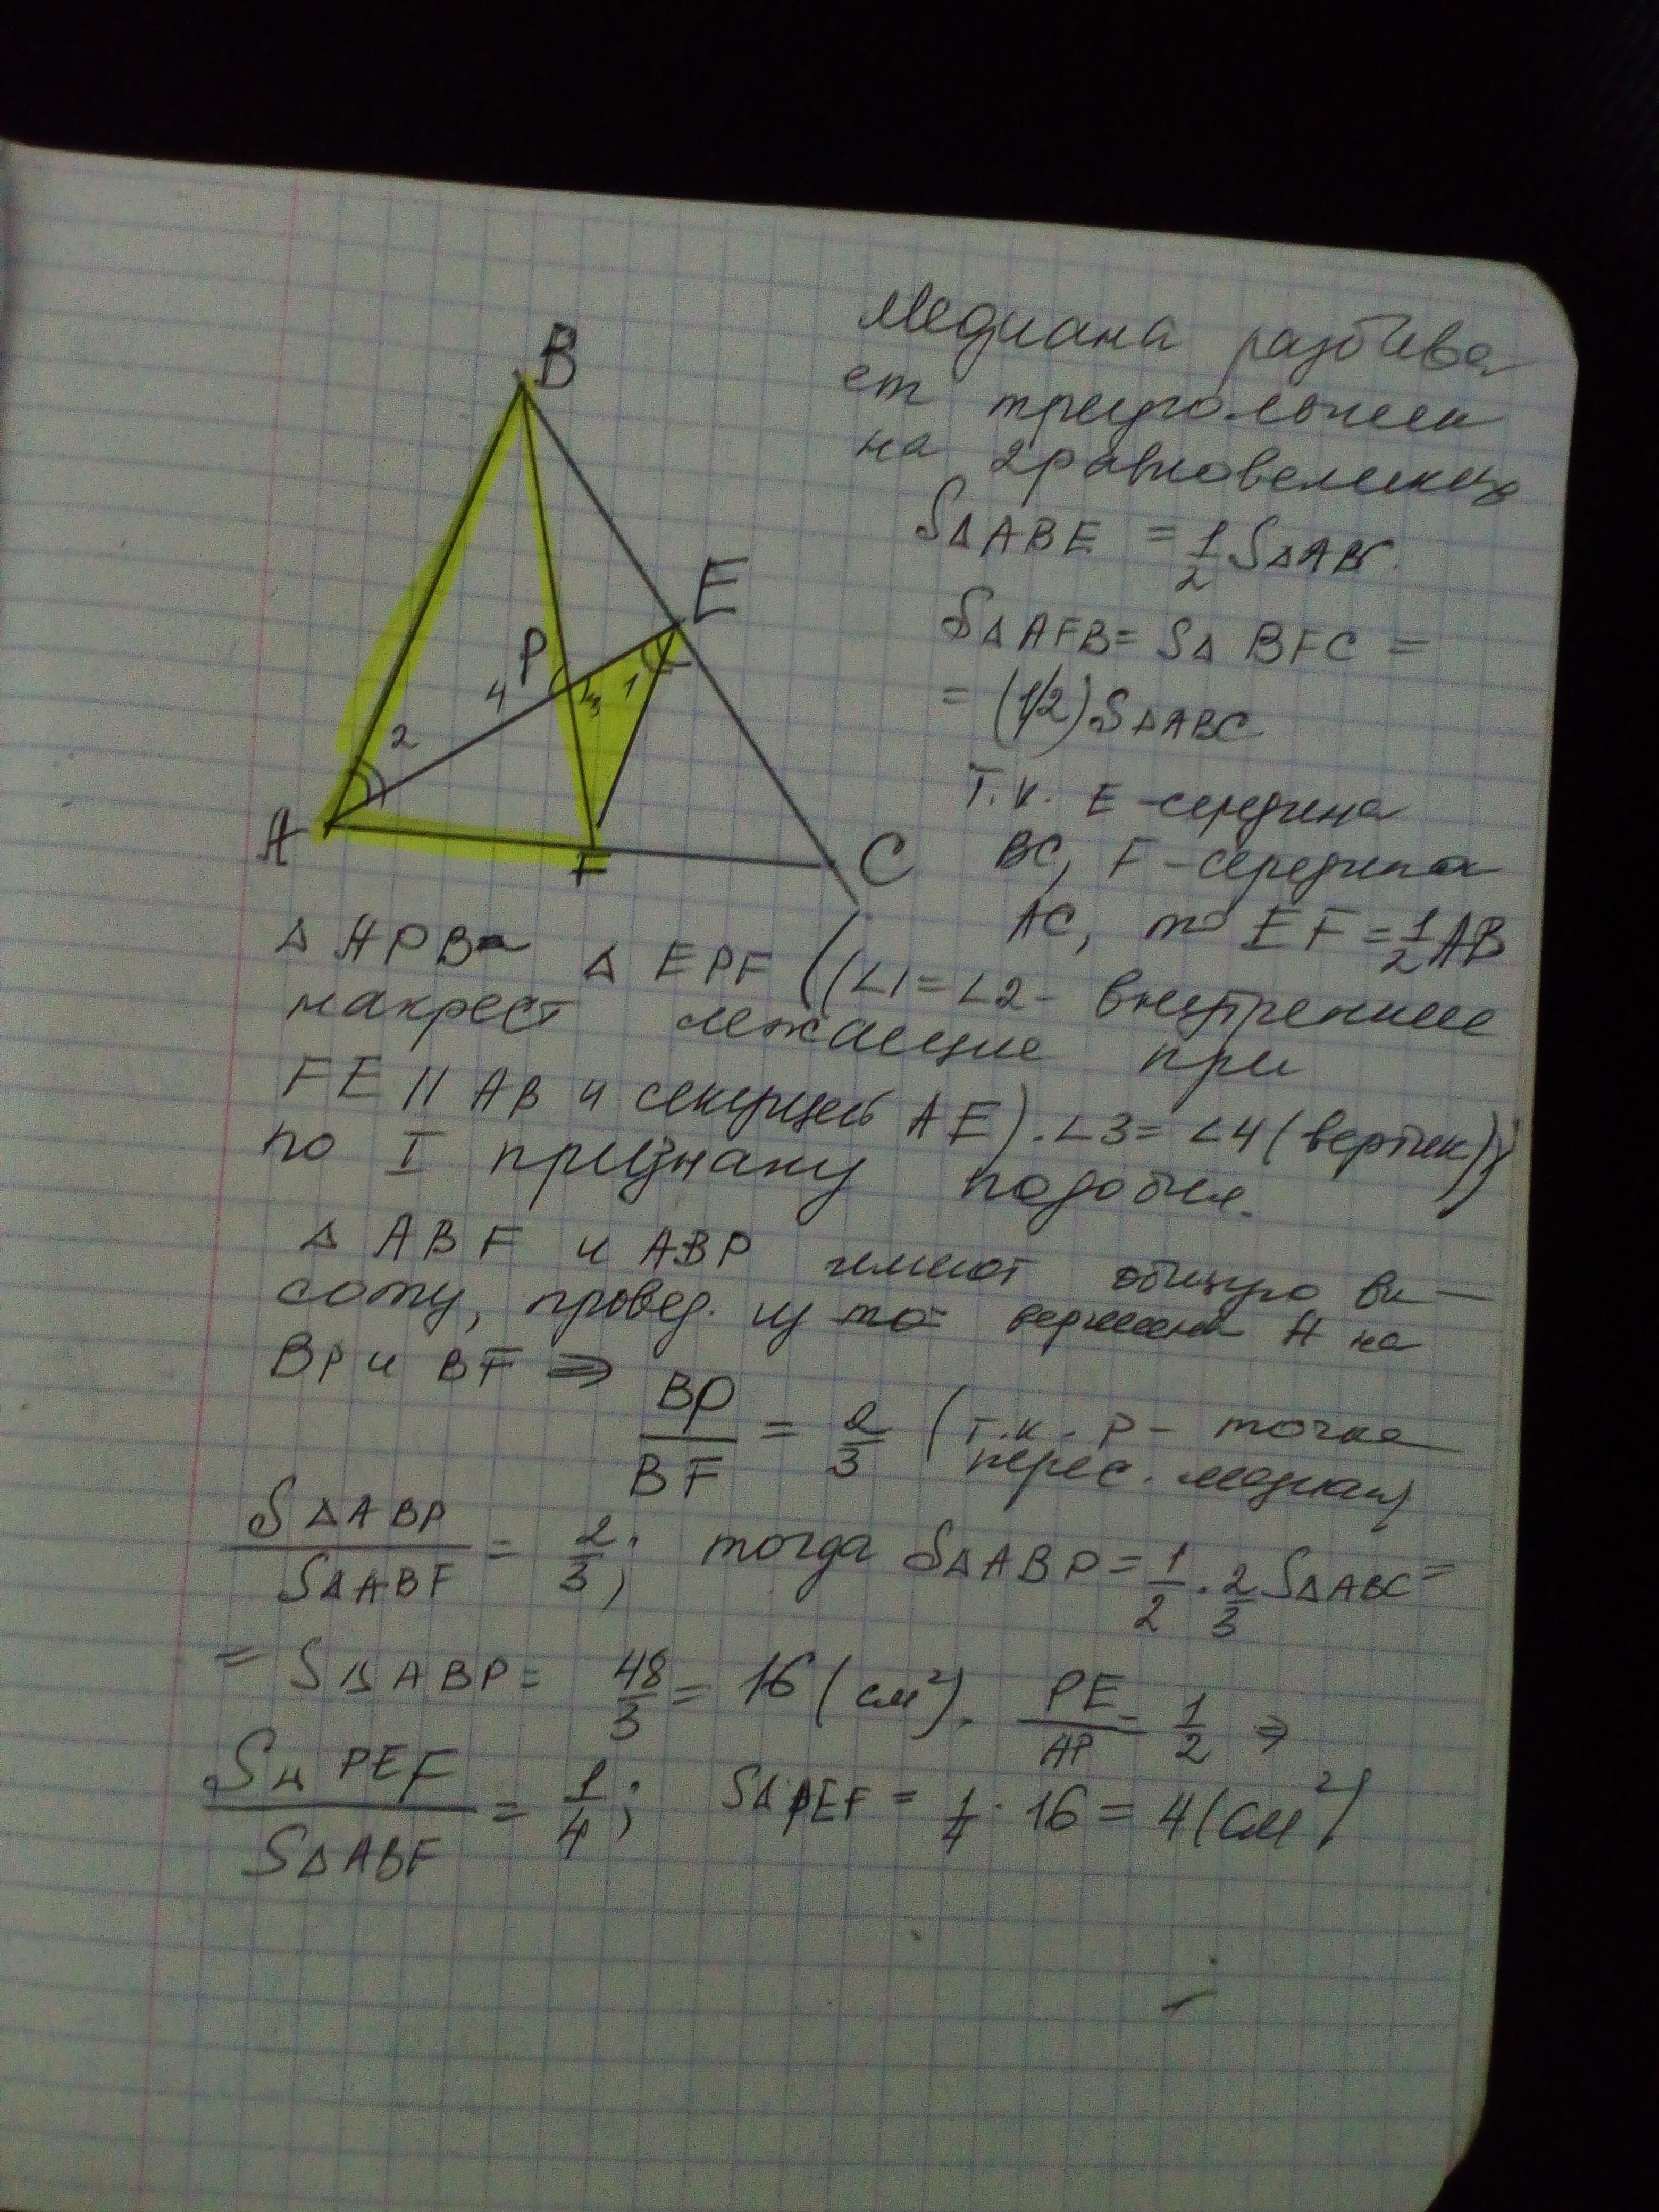 B
E
P
4
3
1
2
A
F
C
Медиана разбива
ет треугольник
на 2 равновеликих
S△ABE = 1/2 S△ABC.
S△AFB = S△BFC =
= (1/2) S△ABC
Т.к. E - середина
BC, F - середина
AC, то EF = 1/2 AB
△APB ~ △EPF ((∠1 = ∠2 - внутренние
накрест лежащие при
FE || AB и секущей AE). ∠3 = ∠4 (вертик))
по I признаку подобия.
△ABF и ABP имеют общую вы-
соту, провед. из вершины A на
BP и BF ⇒ BP/BF = 2/3 (т.к. P - точка
перес. медиан)
S△ABP/S△ABF = 2/3; тогда S△ABP = 1/2 · 2/3 S△ABC =
= S△ABP = 48/3 = 16 (см²). PE/AP = 1/2 ⇒
S△PEF/S△ABF = 1/4; S△PEF = 1/4 · 16 = 4 (см²)